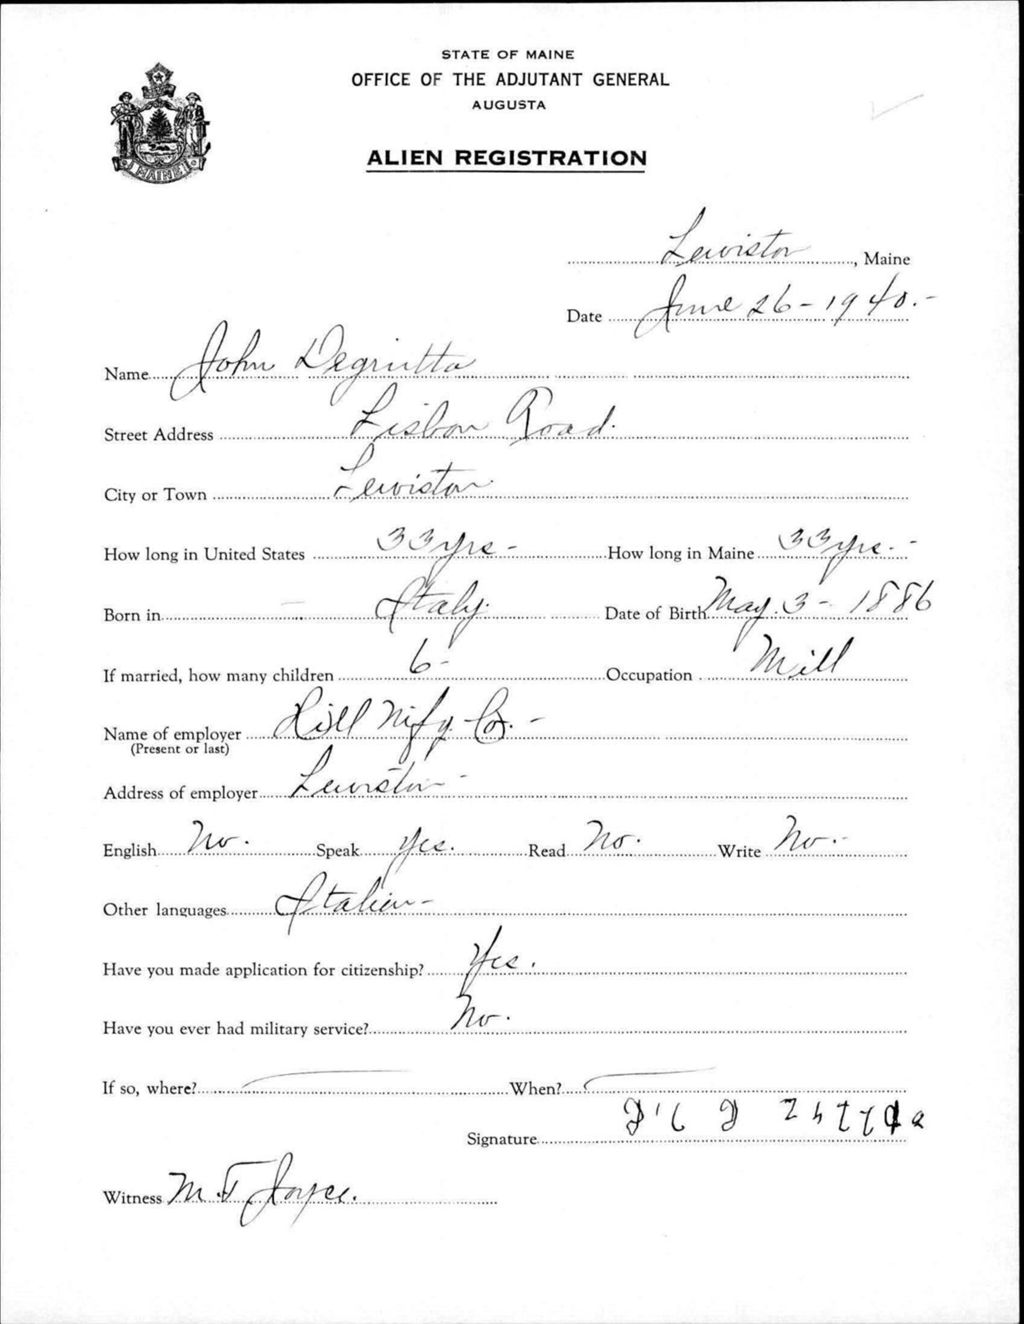 STATE OF MAINE
OFFICE OF THE ADJUTANT GENERAL
AUGUSTA
ALIEN REGISTRATION
MAINE
Lewiston, Maine
Date June 26-1940.-
Name John Degrutta
Street Address Lisbon Road.
City or Town Lewiston
How long in United States 33 yrs- How long in Maine 33 yrs.-
Born in Italy. Date of Birth May. 3- 1886
If married, how many children 6- Occupation Mill
Name of employer Hill Mfg. Co.-
(Present or last)
Address of employer Lewiston-
English No. Speak Yes. Read No. Write No.-
Other languages Italian-
Have you made application for citizenship? Yes.
Have you ever had military service? No.
If so, where? When?
Signature
Witness M. T. Joyce.